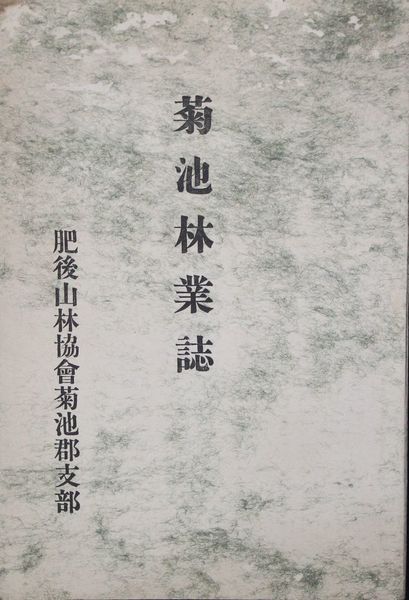 菊池林業誌
肥後山林協會菊池郡支部